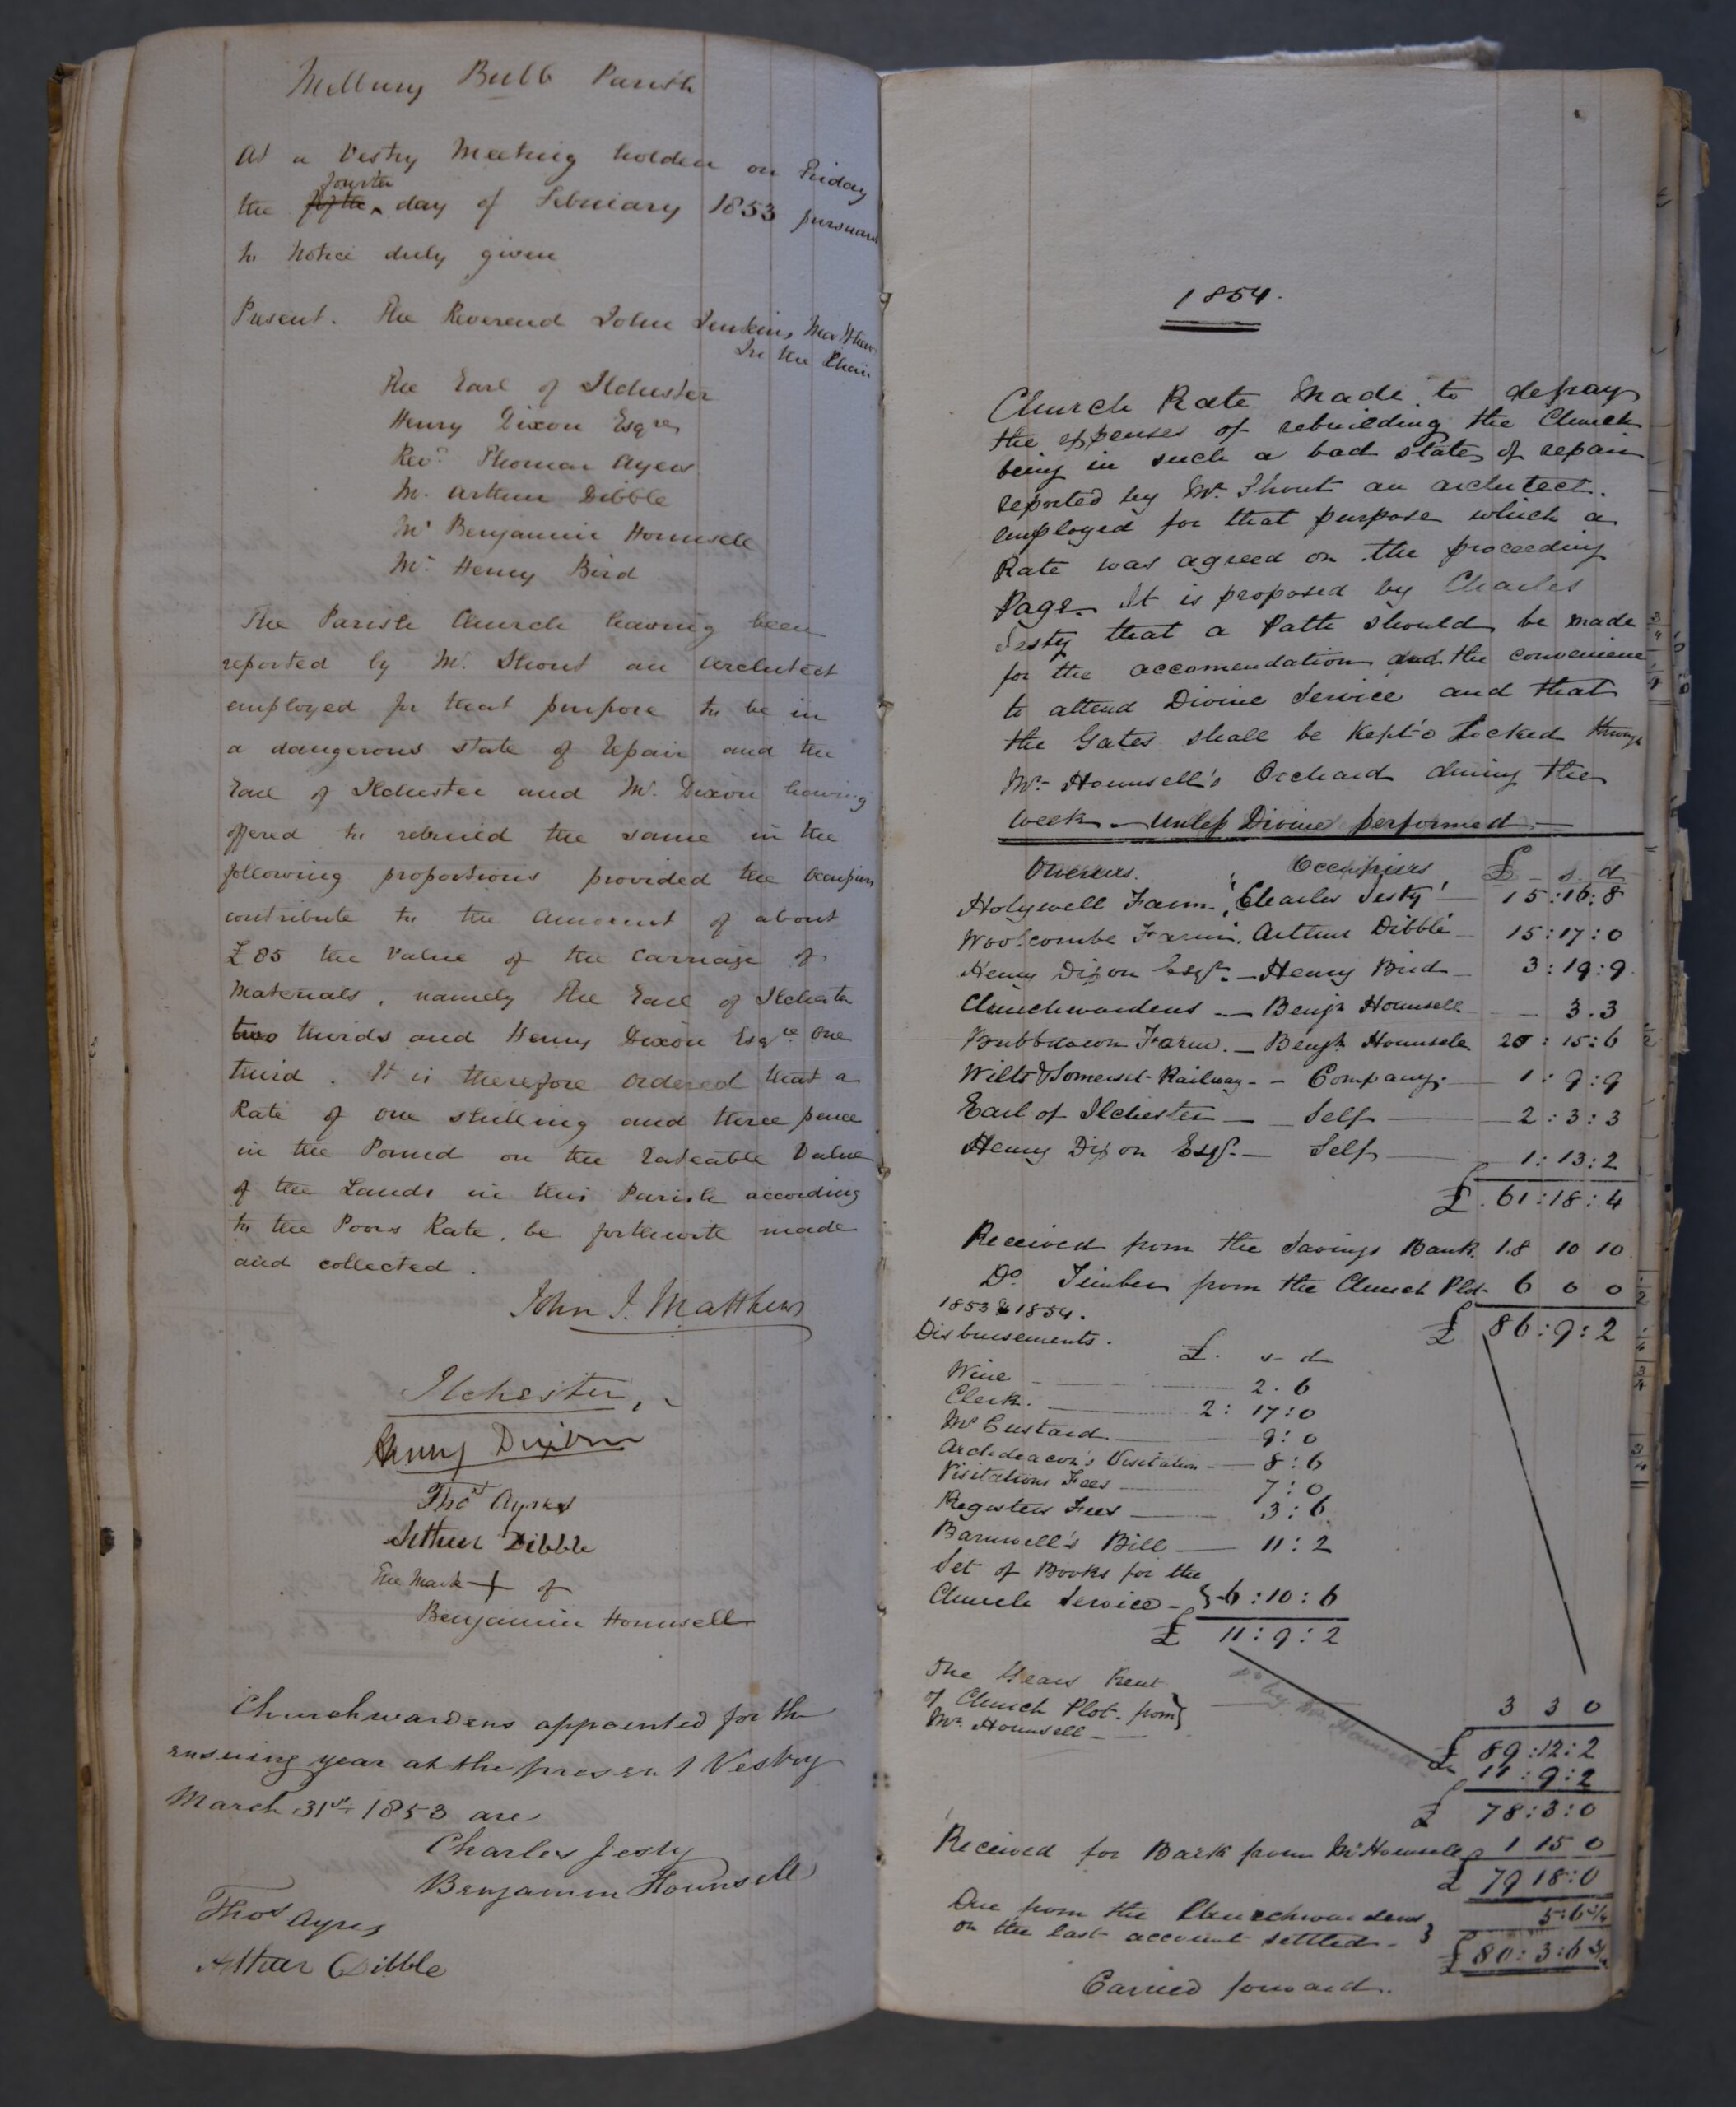 Melbury Bubb Parish
At a Vestry Meeting holden on Friday
the fifth fourth day of February 1853 pursuant
to notice duly given
Present. The Reverend John Jenkins Matthews
In the Chair
The Earl of Ilchester
Henry Dixon Esqre
Revd. Thomas Ayers
Mr. Arthur Dibble
Mr Benjamin Hounsell
Mr. Henry Bird
The Parish Church having been
reported by Mr. Shout an architect
employed for that purpose to be in
a dangerous state of repair and the
Earl of Ilchester and Mr. Dixon having
offered to rebuild the same in the
following proportions provided the Occupiers
contribute to the amount of about
£85 the value of the Carriage of
Materials, namely The Earl of Ilchester
two thirds and Henry Dixon Esqre. one
third. It is therefore ordered that a
Rate of one shilling and three pence
in the Pound on the rateable Value
of the Lands in this Parish according
to the Poors Rate, be forthwith made
and collected.
John J. Matthews
Ilchester,
Henry Dixon
Thos Ayres
Arthur Dibble
The Mark + of
Benjamin Hounsell
Churchwardens appointed for the
ensuing year at the present Vestry
March 31st. 1853 are
Charles Jesty
Benjamin Hounsell
Thos Ayres
Arthur Dibble
1854.
Church Rate Made to defray
the expenses of rebuilding the Church
being in such a bad state of repair
reported by Mr. Shout an architect.
employed for that purpose which a
Rate was agreed on the proceeding
Page. It is proposed by Charles
Jesty that a Path should be made
for the accomendation and the convenience
to attend Divine Service and that
the Gates shall be Kept'o Locked through
Mr. Hounsell's Orchard during the
week - Unless Divine performed -
Owners. Occupiers £ s d
Holywell Farm. Charles Jesty 15:16:8
Woolcombe Farm. Arthur Dibble 15:17:0
Henry Dixon Esqr. - Henry Bird 3:19:9
Churchwardens - Benjn Hounsell 3.3
Bubbdown Farm. - Benjn Hounsell 20:15:6
Wilts & Somerset Railway - Company. 1:9:9
Earl of Ilchester - Self 2:3:3
Henry Dixon Esqr. - Self 1:13:2
£ 61:18:4
Received from the Savings Bank. 18 10 10
Do. Timber from the Church Plot 6 0 0
£ 86:9:2
1853 & 1854.
Disbursements. £. s d
Wine 2.6
Clerk. 2:17:0
Mr Custard. 9:0
Archdeacon's Visitation 8:6
Visitations Fees 7:0
Registers Fees 3:6
Barnwell's Bill 11:2
Set of Books for the
Church Service - } 6:10:6
£ 11:9:2
The Years Rent
of Church Plot. from }
Mr. Hounsell 3 3 0
£ 89:12:2
11:9:2
£ 78:3:0
Received for Bark from Mr Hounsell 1 15 0
£ 79 18:0
Due from the Churchwardens }
on the last account settled - 5:6 3/4
£ 80:3:6 3/4
Carried forward.